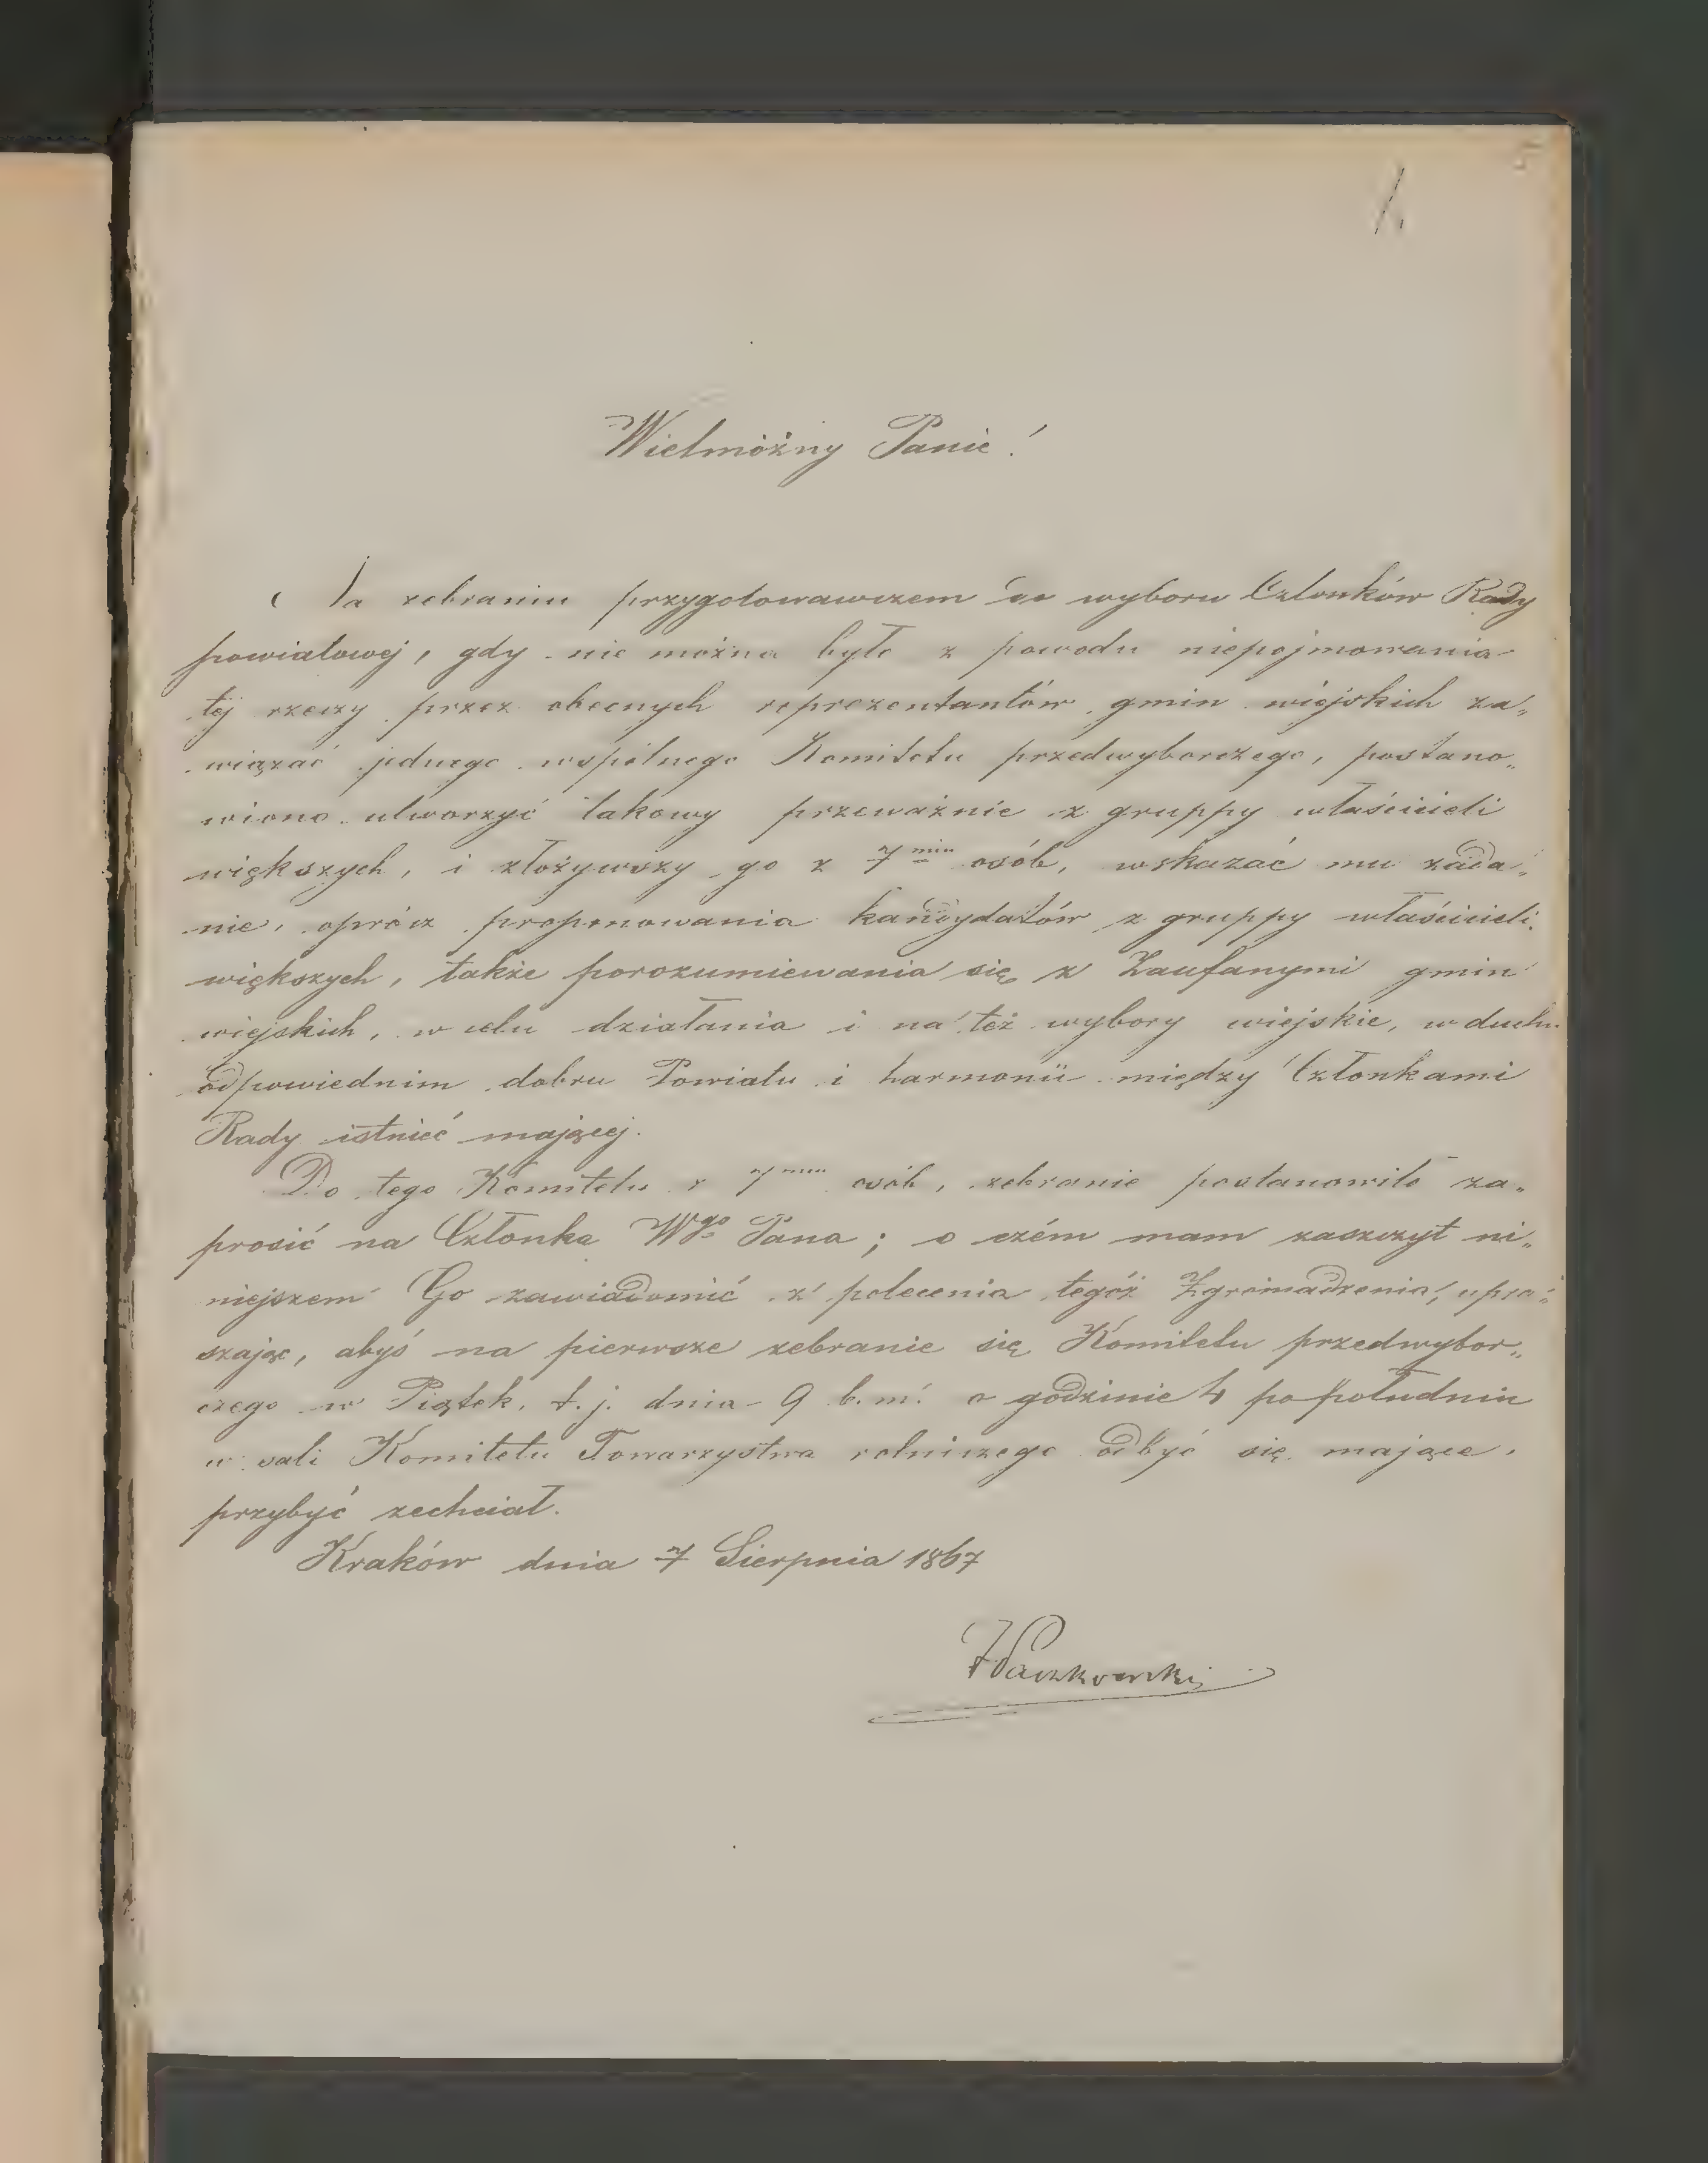 5
1.
Wielmożny Panie!
Na zebraniu przygotowawczem do wyboru Członków Rady
powiatowej, gdy nie można było z powodu niepojmowania
tej rzeczy przez obecnych reprezentantów gmin wiejskich za„
wiązać jednego wspólnego Komitetu przedwyborczego, postano„
wiono utworzyć takowy przeważnie z gruppy właścicieli
większych, i złożywszy go z 7miu osób, wskazać mu zada„
nie, oprócz proponowania kandydatów z gruppy właścicieli
większych, także porozumiewania się z Zaufanymi gmin
wiejskich, w celu działania i na też wybory wiejskie, w duchu
odpowiednim dobru Powiatu i harmonii między Członkami
Rady istnieć mającej.
Do tego Komitetu z 7miu osób, zebranie postanowiło za„
prosić na Członka Wgo Pana; o czém mam zaszczyt ni„
niejszem Go zawiadomić z polecenia tegóż Zgromadzenia, upra„
szając, abyś na pierwsze zebranie się Komitetu przedwybor„
czego w Piątek, t. j. dnia 9 b. m. o godzinie 4 po południu
w sali Komitetu Towarzystwa rolniczego odbyć się mające,
przybyć zechciał.
Kraków dnia 7 Sierpnia 1867